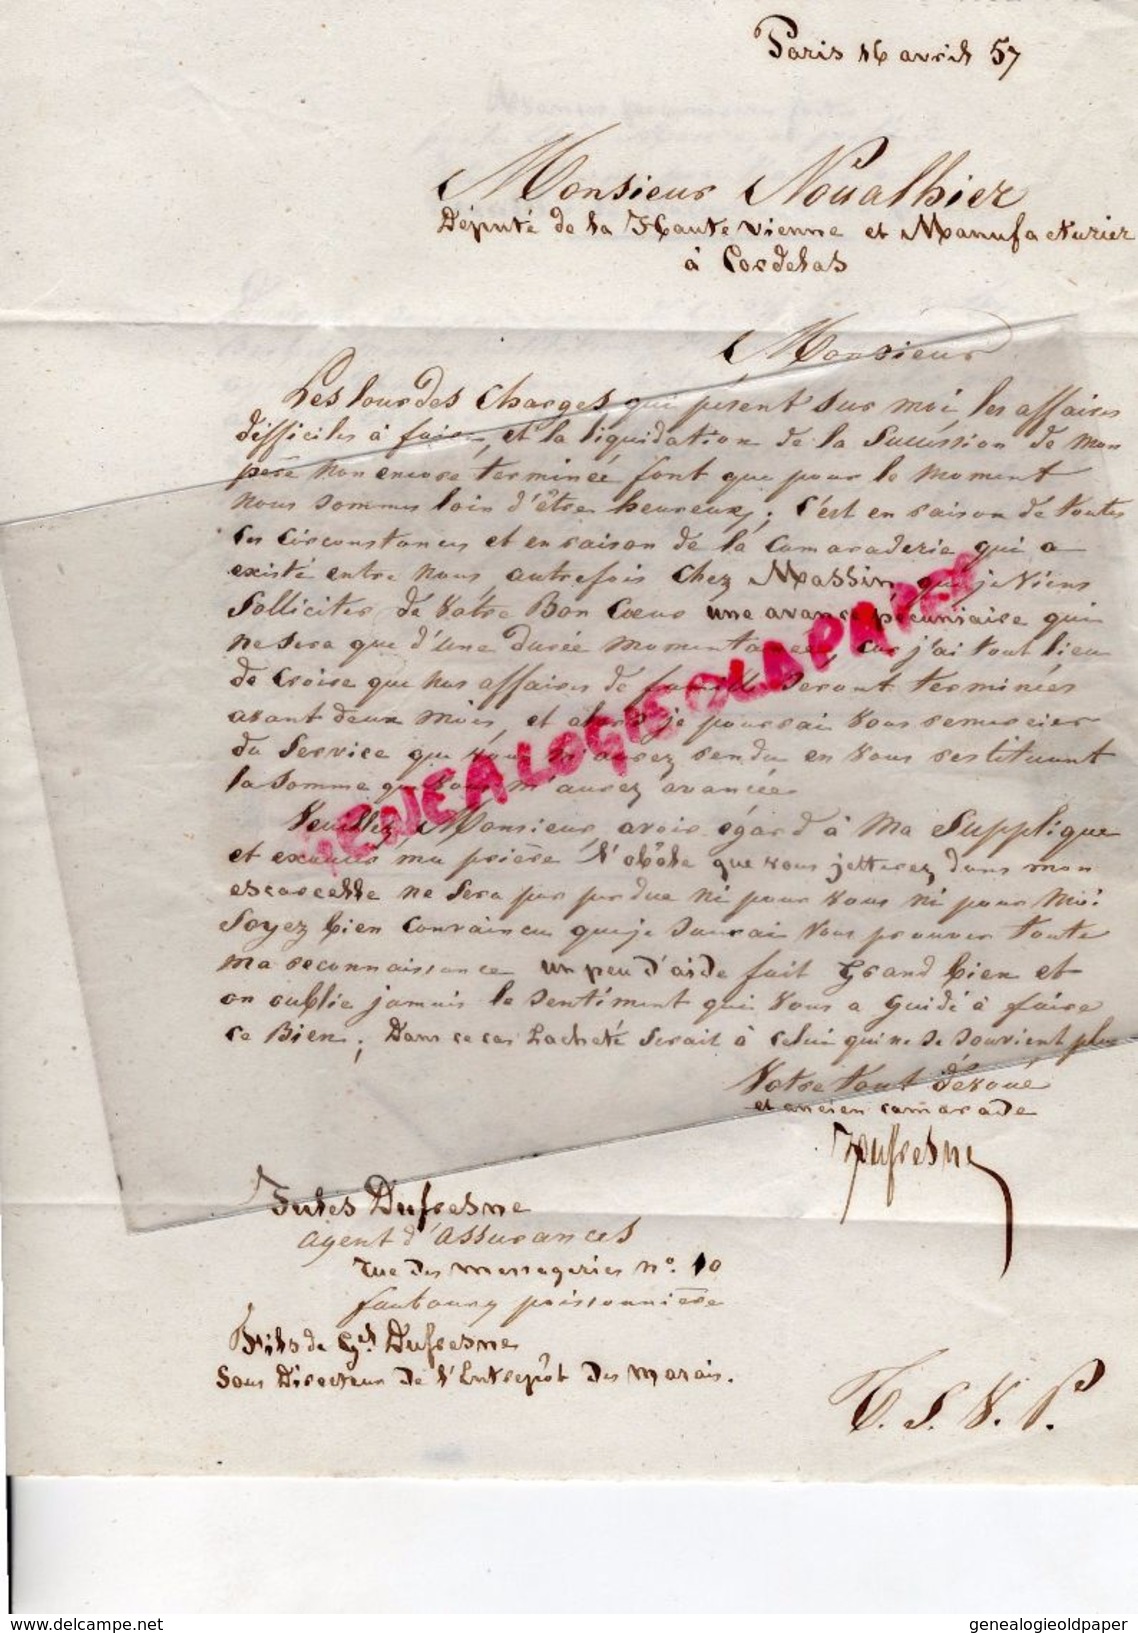 Paris 16 avril 57
Monsieur Noualhier
Député de la Haute vienne et Manufacturier
à Cordelas
Monsieur
Les lourdes charges qui pèsent sur moi, les affaires
difficiles à faire, et la liquidation de la Succession de mon
père non encore terminée font que pour le moment
nous sommes loin d'être heureux; c'est en raison de toutes
ces circonstances et en raison de la Camaraderie qui a
existé entre nous autrefois chez Massin, que je viens
Solliciter de votre Bon Cœur une avance pécuniaire qui
ne sera que d'une durée momentanée, car j'ai tout lieu
de croire que nos affaires de famille seront terminées
avant deux mois, et alors je pourrai vous remercier
du Service que vous m'aurez rendu en vous restituant
la somme que vous m'aurez avancée
Veuillez, Monsieur, avoir égard à ma Supplique
et exaucer ma prière l'obôle que vous jetterez dans mon
escarcelle ne sera pas perdue ni pour vous ni pour moi:
Soyez bien convaincu que je saurai vous prouver toute
ma reconnaissance un peu d'aide fait Grand bien et
on oublie jamais le sentiment qui vous a guidé à faire
ce Bien; Dans ce cas Lacheté serait à celui qui ne se souvient plus
Votre tout dévoué
et ancien camarade
JDufresne
Jules Dufresne
agent d'assurances
rue des messageries n°. 10
faubourg poissonnière
Fils de Dufresne
Sous Directeur de l'Entrepôt des marais.
T. S. V. P.
GENEALOGIE OLD PAPER
genealogieoldpaper
delcampe.net